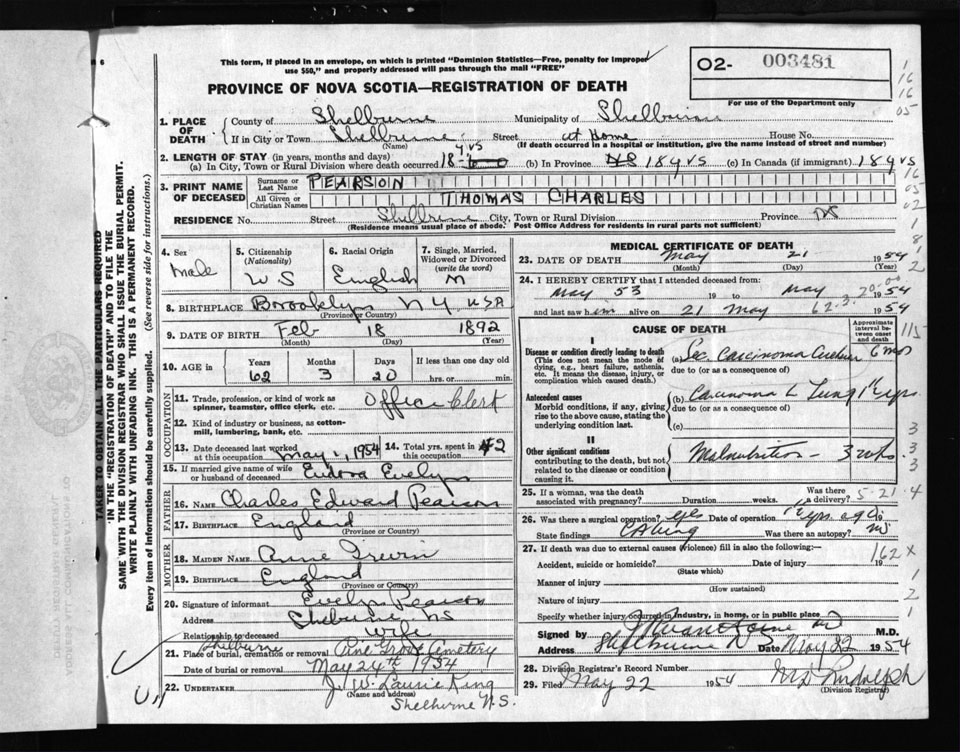 This form, if placed in an envelope, on which is printed "Dominion Statistics—Free, penalty for improper
use $50," and properly addressed will pass through the mail "FREE"
O2- 003481
For use of the Department only
PROVINCE OF NOVA SCOTIA—REGISTRATION OF DEATH
1. PLACE OF DEATH County of Shelburne Municipality of Shelburne
If in City or Town Shelburne Street at Home House No.
(Name) (If death occurred in a hospital or institution, give the name instead of street and number)
2. LENGTH OF STAY (in years, months and days)
(a) In City, Town or Rural Division where death occurred 18 yrs (b) In Province NS 18 yrs (c) In Canada (if immigrant) 18 yrs
3. PRINT NAME OF DECEASED Surname or Last Name PEARSON
All Given or Christian Names THOMAS CHARLES
RESIDENCE No. Street Shelburne City, Town or Rural Division Province NS
(Residence means usual place of abode. Post Office Address for residents in rural parts not sufficient)
4. Sex Male
5. Citizenship (Nationality) US
6. Racial Origin English
7. Single, Married, Widowed or Divorced (write the word) M
8. BIRTHPLACE Brooklyn NY USA
(Province or Country)
9. DATE OF BIRTH Feb 18 1892
(Month) (Day) (Year)
10. AGE in Years Months Days If less than one day old
62 3 20 hrs. or min.
OCCUPATION
11. Trade, profession or kind of work as spinner, teamster, office clerk, etc. Office Clerk
12. Kind of industry or business, as cotton-mill, lumbering, bank, etc.
13. Date deceased last worked at this occupation May 1, 1954
14. Total yrs. spent in this occupation 42
15. If married give name of wife or husband of deceased Eudora Evelyn
FATHER
16. Name Charles Edward Pearson
17. Birthplace England
(Province or Country)
MOTHER
18. Maiden Name Anne
19. Birthplace England
(Province or Country)
20. Signature of informant Evelyn Pearson
Address Shelburne NS
Relationship to deceased Wife
Shelburne
21. Place of burial, cremation or removal Pine Grove Cemetery
Date of burial or removal May 24th 1954
22. UNDERTAKER J. W. Laurie King
(Name and address)
Shelburne N.S.
MEDICAL CERTIFICATE OF DEATH
23. DATE OF DEATH May 21 1954
(Month) (Day) (Year)
24. I HEREBY CERTIFY that I attended deceased from:
May 53 19 to May 1954
and last saw him alive on 21 May 1954
CAUSE OF DEATH
Approximate interval between onset and death
I
Disease or condition directly leading to death
(This does not mean the mode of dying, e.g., heart failure, asthenia, etc. It means the disease, injury, or complication which caused death.)
(a) Sec. Carcinoma 6 mos
due to (or as a consequence of)
Antecedent causes
Morbid conditions, if any, giving rise to the above cause, stating the underlying condition last.
(b) Carcinoma L Lung
due to (or as a consequence of)
(c)
II
Other significant conditions
contributing to the death, but not related to the disease or condition causing it.
Malnutrition — 3 wks
25. If a woman, was the death associated with pregnancy? Duration weeks. Was there a delivery? 5-21 4
26. Was there a surgical operation? yes Date of operation yrs. ago
State findings CA Lung Was there an autopsy? no
27. If death was due to external causes (violence) fill in also the following:— 162 x
Accident, suicide or homicide? Date of injury
(State which)
Manner of injury
(How sustained)
Nature of injury
Specify whether injury occurred in industry, in home, or in public place
Signed by M.D.
Address Shelburne N Date May 22 1954
28. Division Registrar's Record Number
29. Filed May 22 1954
(Division Registrar)
TAKEN TO OBTAIN ALL THE PARTICULARS REQUIRED
IN THE "REGISTRATION OF DEATH" AND TO FILE THE
SAME WITH THE DIVISION REGISTRAR WHO SHALL ISSUE THE BURIAL PERMIT.
WRITE PLAINLY WITH UNFADING INK. THIS IS A PERMANENT RECORD.
Every item of information should be carefully supplied. (See reverse side for instructions.)